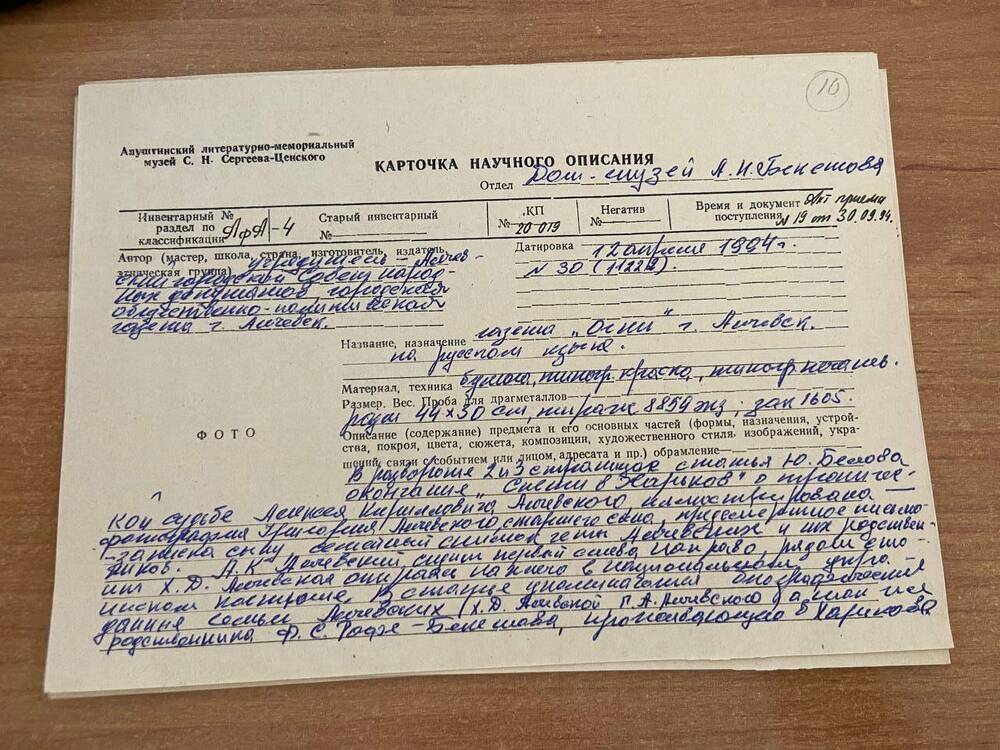 10
Алуштинский литературно-мемориальный
музей С. Н. Сергеева-Ценского
КАРТОЧКА НАУЧНОГО ОПИСАНИЯ
Отдел Дом-музей А.Н.Бекетова
Инвентарный №
раздел по
классификации АфА-4
Старый инвентарный
№
КП
№ 20 019
Негатив
№
Время и документ Акт приема
поступления № 19 от 30.09.94.
Автор (мастер, школа, страна, изготовитель, издатель,
этническая группа) учредитель – Алчев-
ский городской Совет народ-
ных депутатов городская
общественно-политическая
газета г. Алчевск.
Датировка 12 апреля 1994 г.
№ 30 (11222).
Название, назначение газета „Огни" г. Алчевск.
на русском языке.
Материал, техника бумага, типогр. краска, типогр. печать.
Размер. Вес. Проба для драгметаллов
44 х 30 см, тираж 8854 экз; зак 1605.
ФОТО
Описание (содержание) предмета и его основных частей (формы, назначения, устрой-
ства, покроя, цвета, сюжета, композиции, художественного стиля, изображений, укра-
шений, связи с событием или лицом, адресата и пр.) обрамление—
В развороте 2 и 3 страницах статья Ю. Белова
окончание „ Харьков" о трагичес-
кой судьбе Алексея Кирилловича Алчевского, иллюстрирована —
фотография Григория Алчевского старшего сына, предсмертное письмо-
-записка сыну, семейный снимок четы Алчевских и их родствен-
ников. А.К Алчевский сидит первый слева направо, рядом сто-
ит Х.Д. Алчевская опираясь на него в национальном укра-
инском костюме. В статье упоминаются
данные семьи Алчевских (Х.Д. Алчевской Г.А.Алчевского) а так же
родственника Ф.С. Рофе-Бекетова, проживающего в Харькове